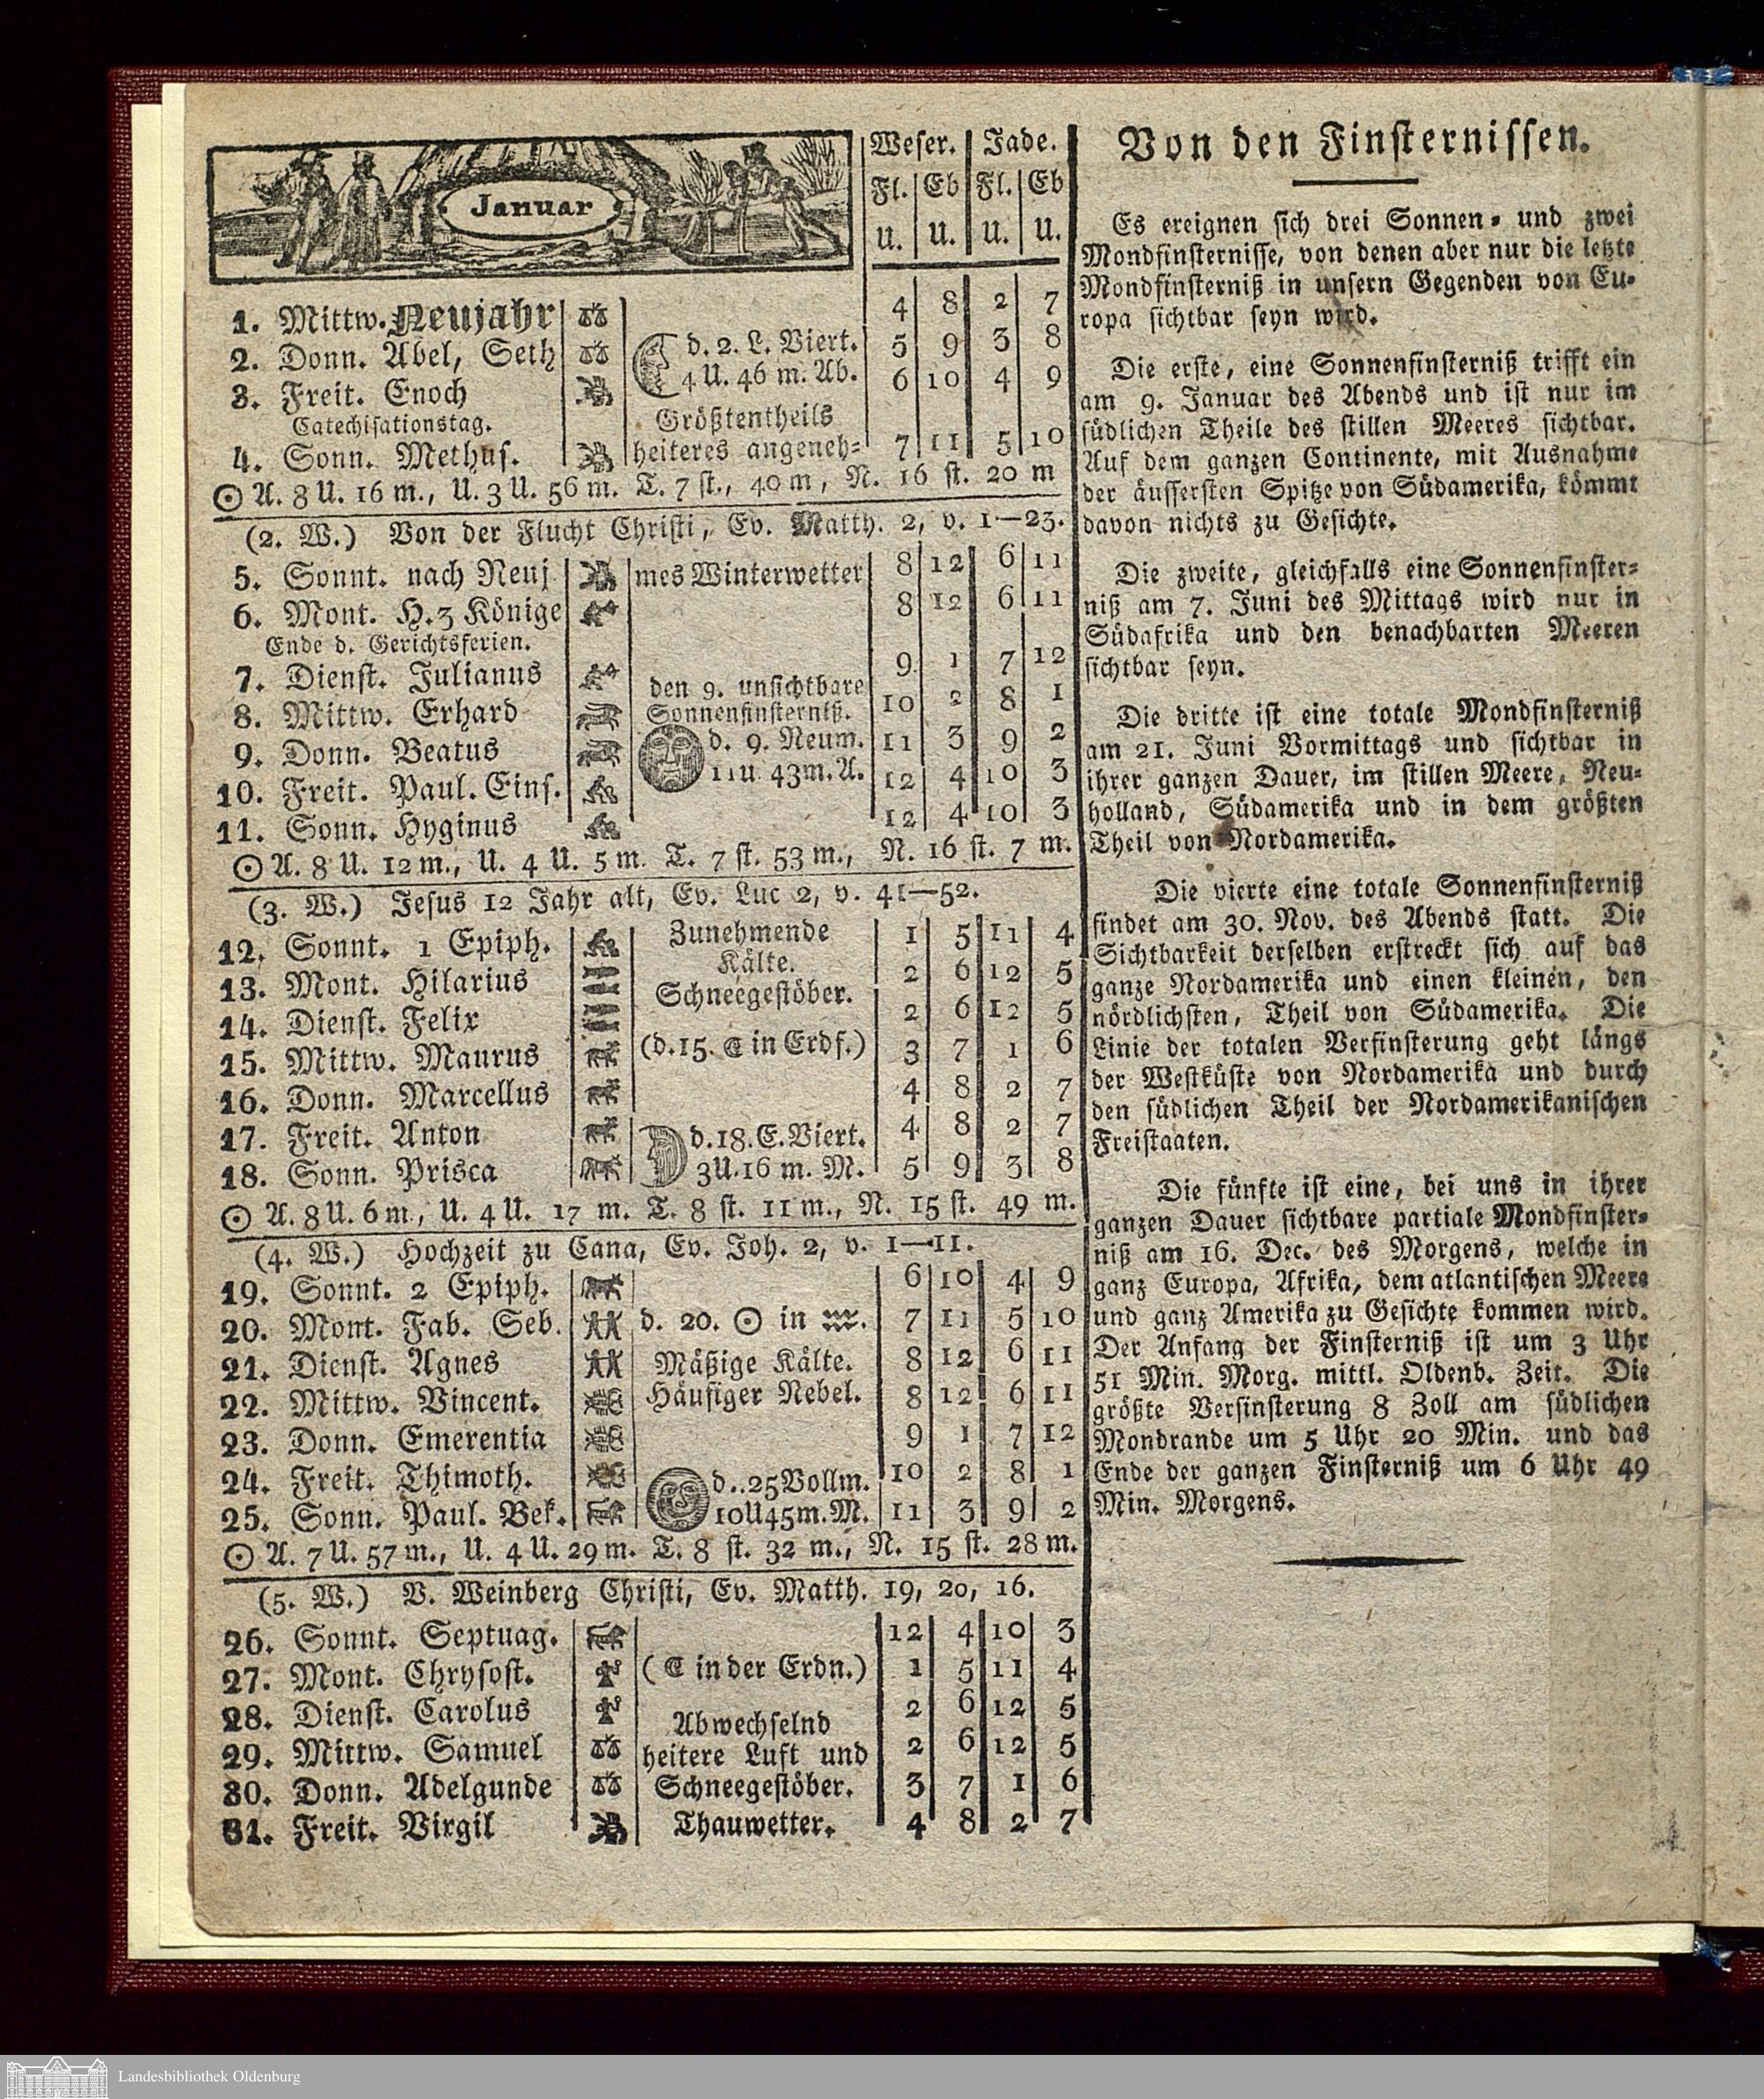 Januar
Weser. Jade.
Fl. Eb Fl. Eb
U. U. U. U.
1. Mittw. Neujahr 4 8 2 7
2. Donn. Abel, Seth d. 2. L. Viert. 5 9 3 8
3. Freit. Enoch 4 U. 46 m. Ab. 6 10 4 9
Catechisationstag. Größtentheils
4. Sonn. Methus. heiteres angeneh- 7 11 5 10
☉ A. 8 U. 16 m., U. 3 U. 56 m. T. 7 st., 40 m, N. 16 st. 20 m
(2. W.) Von der Flucht Christi, Ev. Matth. 2, v. 1—23.
5. Sonnt. nach Neuj mes Winterwetter 8 12 6 11
6. Mont. H. 3 Könige 8 12 6 11
Ende d. Gerichtsferien.
7. Dienst. Julianus 9 1 7 12
den 9. unsichtbare
8. Mittw. Erhard Sonnenfinsterniß. 10 2 8 1
9. Donn. Beatus d. 9. Neum. 11 3 9 2
10. Freit. Paul. Eins. 11 u 43 m. A. 12 4 10 3
11. Sonn. Hyginus 12 4 10 3
☉ A. 8 U. 12 m., U. 4 U. 5 m. T. 7 st. 53 m., N. 16 st. 7 m.
(3. W.) Jesus 12 Jahr alt, Ev. Luc 2, v. 41—52.
12. Sonnt. 1 Epiph. Zunehmende 1 5 11 4
Kälte.
13. Mont. Hilarius 2 6 12 5
14. Dienst. Felix Schneegestöber. 2 6 12 5
15. Mittw. Maurus (d. 15. ☾ in Erdf.) 3 7 1 6
16. Donn. Marcellus 4 8 2 7
17. Freit. Anton d. 18. E. Viert. 4 8 2 7
18. Sonn. Prisca 3 U. 16 m. M. 5 9 3 8
☉ A. 8 U. 6 m., U. 4 U. 17 m. T. 8 st. 11 m., N. 15 st. 49 m.
(4. W.) Hochzeit zu Cana, Ev. Joh. 2, v. 1—11.
19. Sonnt. 2 Epiph. 6 10 4 9
20. Mont. Fab. Seb. d. 20. ☉ in ♒. 7 11 5 10
21. Dienst. Agnes Mäßige Kälte. 8 12 6 11
22. Mittw. Vincent. Häufiger Nebel. 8 12 6 11
23. Donn. Emerentia 9 1 7 12
24. Freit. Thimoth. d..25 Vollm. 10 2 8 1
25. Sonn. Paul. Bek. 10 U 45 m. M. 11 3 9 2
☉ A. 7 U. 57 m., U. 4 U. 29 m. T. 8 st. 32 m., N. 15 st. 28 m.
(5. W.) V. Weinberg Christi, Ev. Matth. 19, 20, 16.
26. Sonnt. Septuag. 12 4 10 3
27. Mont. Chrysost. (☾ in der Erdn.) 1 5 11 4
28. Dienst. Carolus 2 6 12 5
Abwechselnd
29. Mittw. Samuel heitere Luft und 2 6 12 5
30. Donn. Adelgunde Schneegestöber. 3 7 1 6
31. Freit. Virgil Thauwetter. 4 8 2 7
Von den Finsternissen.
Es ereignen sich drei Sonnen- und zwei
Mondfinsternisse, von denen aber nur die letzte
Mondfinsterniß in unsern Gegenden von Eu-
ropa sichtbar seyn wird.
Die erste, eine Sonnenfinsterniß trifft ein
am 9. Januar des Abends und ist nur im
südlichen Theile des stillen Meeres sichtbar.
Auf dem ganzen Continente, mit Ausnahme
der äussersten Spitze von Südamerika, kömmt
davon nichts zu Gesichte.
Die zweite, gleichfalls eine Sonnenfinster-
niß am 7. Juni des Mittags wird nur in
Südafrika und den benachbarten Meeren
sichtbar seyn.
Die dritte ist eine totale Mondfinsterniß
am 21. Juni Vormittags und sichtbar in
ihrer ganzen Dauer, im stillen Meere, Neu-
holland, Südamerika und in dem größten
Theil von Nordamerika.
Die vierte eine totale Sonnenfinsterniß
findet am 30. Nov. des Abends statt. Die
Sichtbarkeit derselben erstreckt sich auf das
ganze Nordamerika und einen kleinen, den
nördlichsten, Theil von Südamerika. Die
Linie der totalen Verfinsterung geht längs
der Westküste von Nordamerika und durch
den südlichen Theil der Nordamerikanischen
Freistaaten.
Die fünfte ist eine, bei uns in ihrer
ganzen Dauer sichtbare partiale Mondfinster-
niß am 16. Dec. des Morgens, welche in
ganz Europa, Afrika, dem atlantischen Meere
und ganz Amerika zu Gesichte kommen wird.
Der Anfang der Finsterniß ist um 3 Uhr
51 Min. Morg. mittl. Oldenb. Zeit. Die
größte Verfinsterung 8 Zoll am südlichen
Mondrande um 5 Uhr 20 Min. und das
Ende der ganzen Finsterniß um 6 Uhr 49
Min. Morgens.
Landesbibliothek Oldenburg